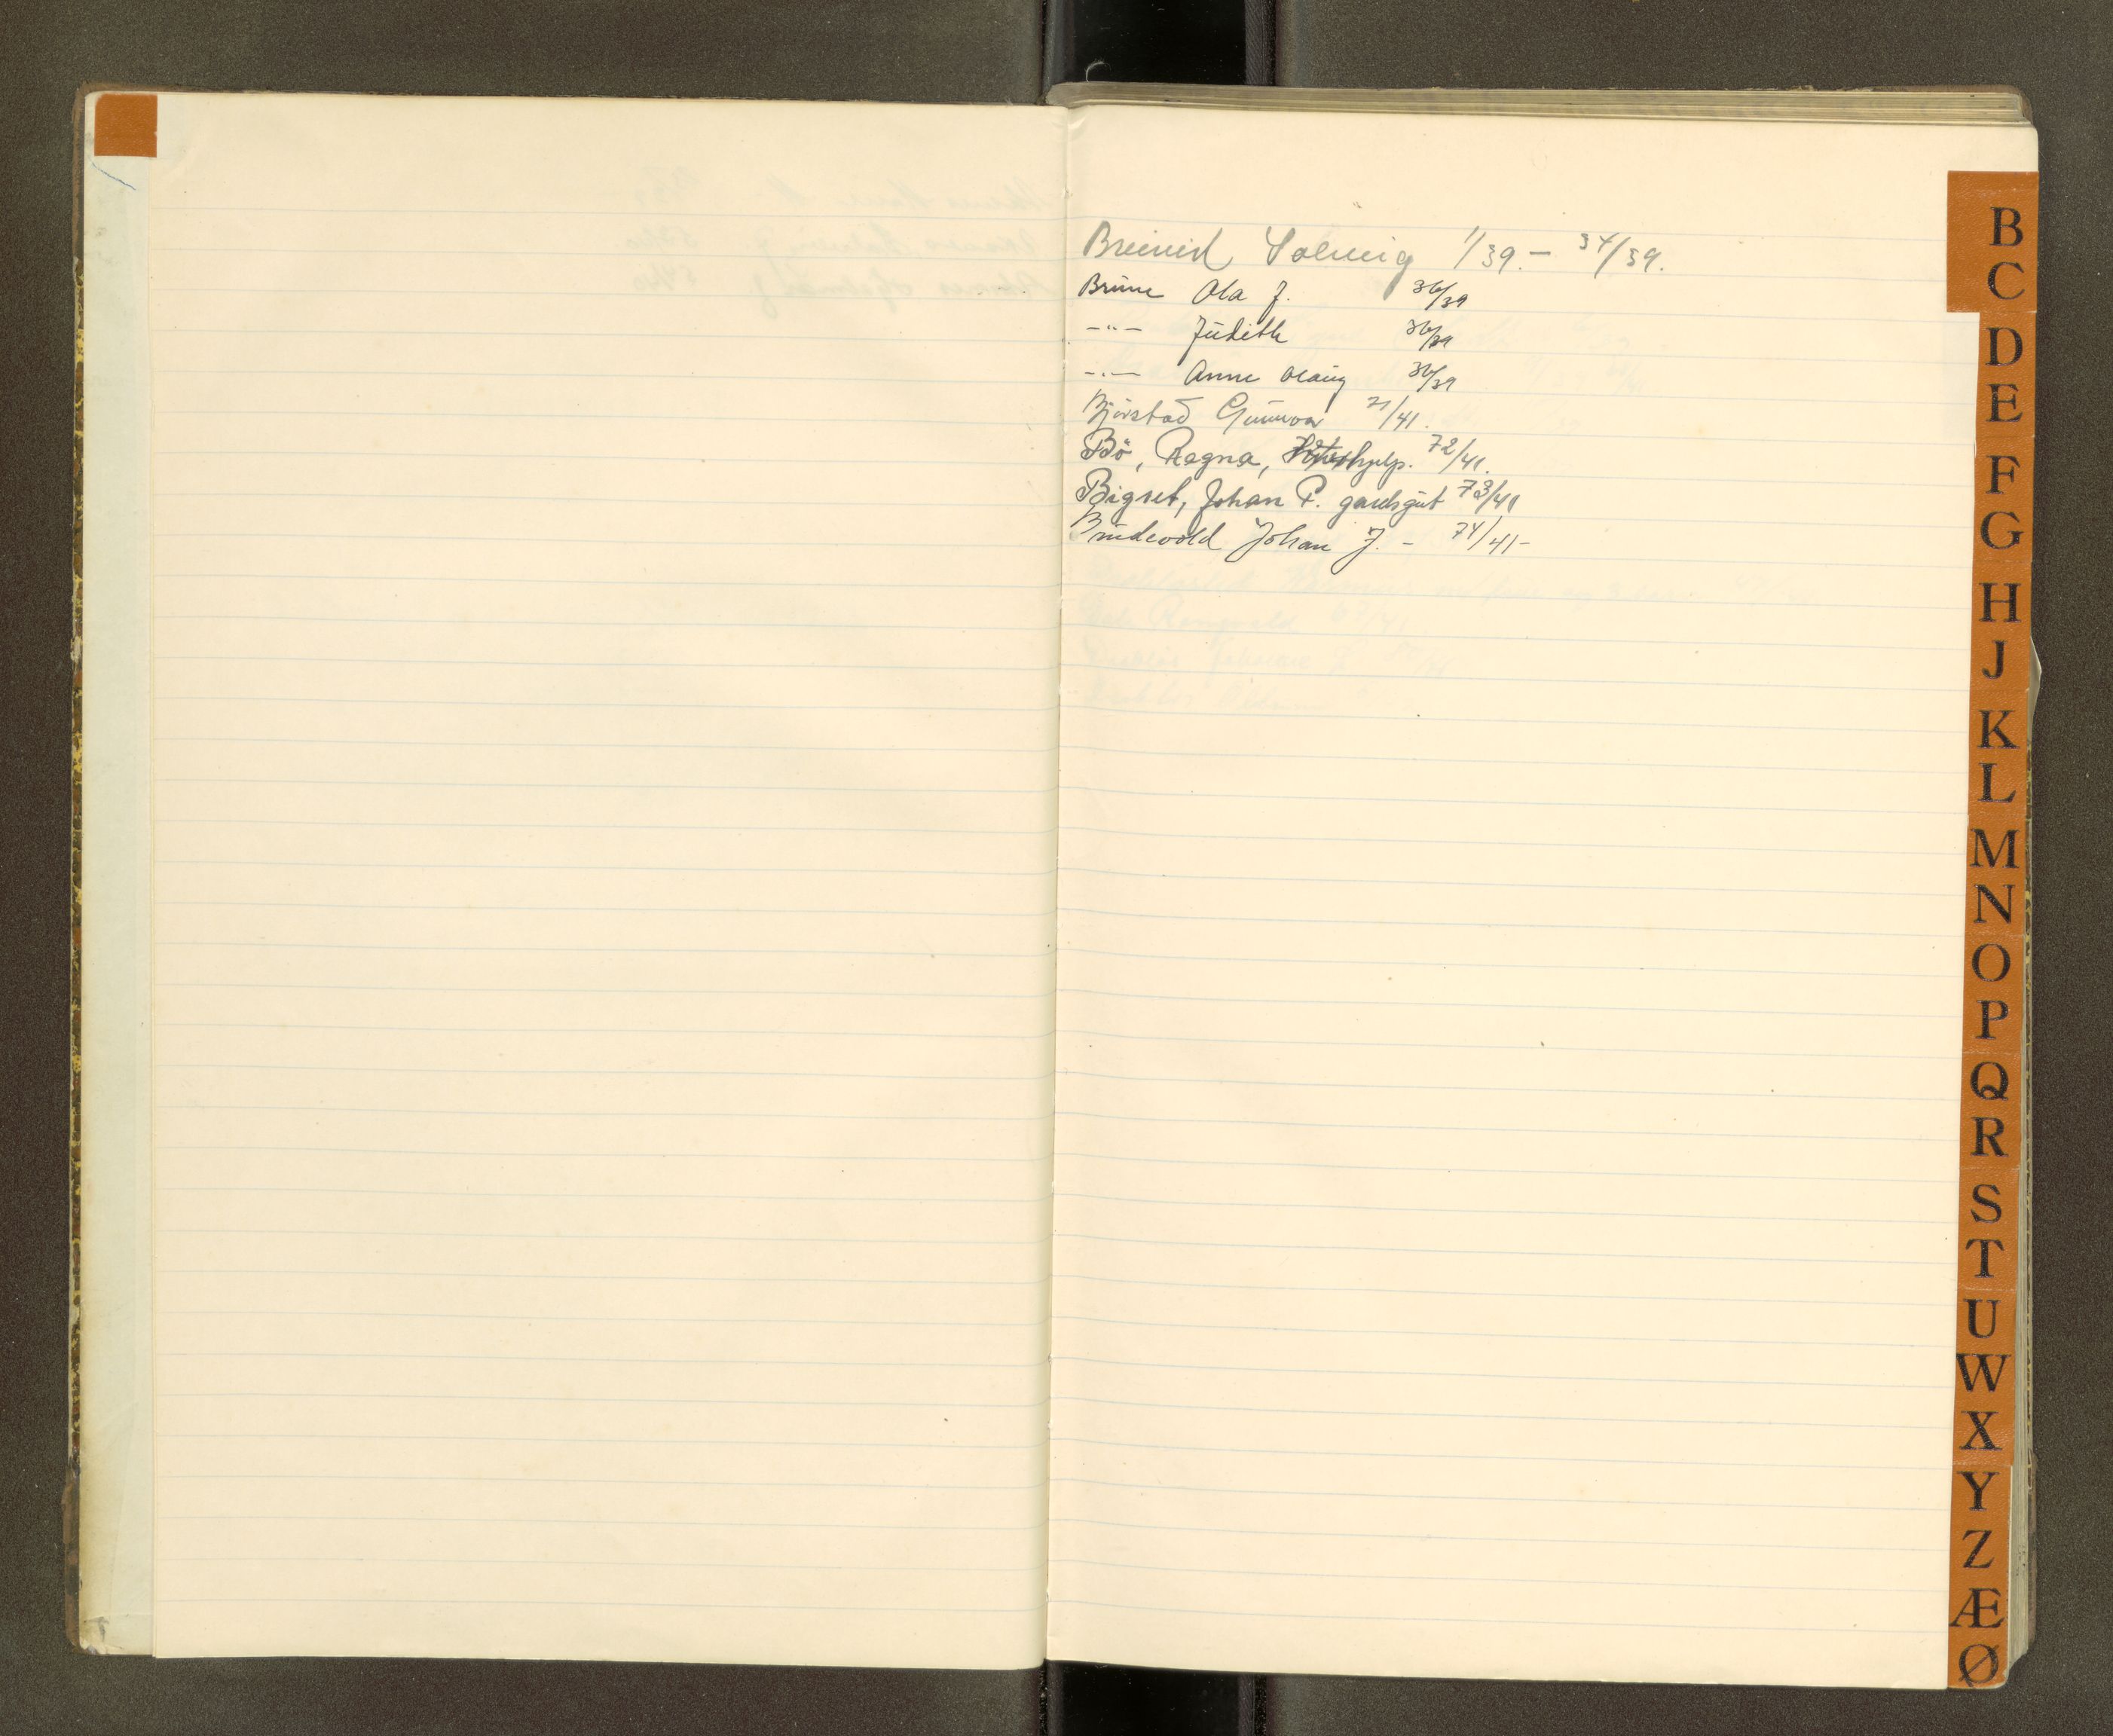 Breivid Solveig 1/39. - 34/39.
Brune Ola J. 36/39
-"- Judith 36/39
-"- Anne Olaug 36/39
Bjørstad Gunnvor 71/41.
Bö, Ragna, hjelp. 72/41.
Bigset, Johan P. gardsgut 73/41
Johan J. - 74/41-
B
C
D
E
F
G
H
J
K
L
M
N
O
P
Q
R
S
T
U
W
X
Y
Z
Æ
Ø